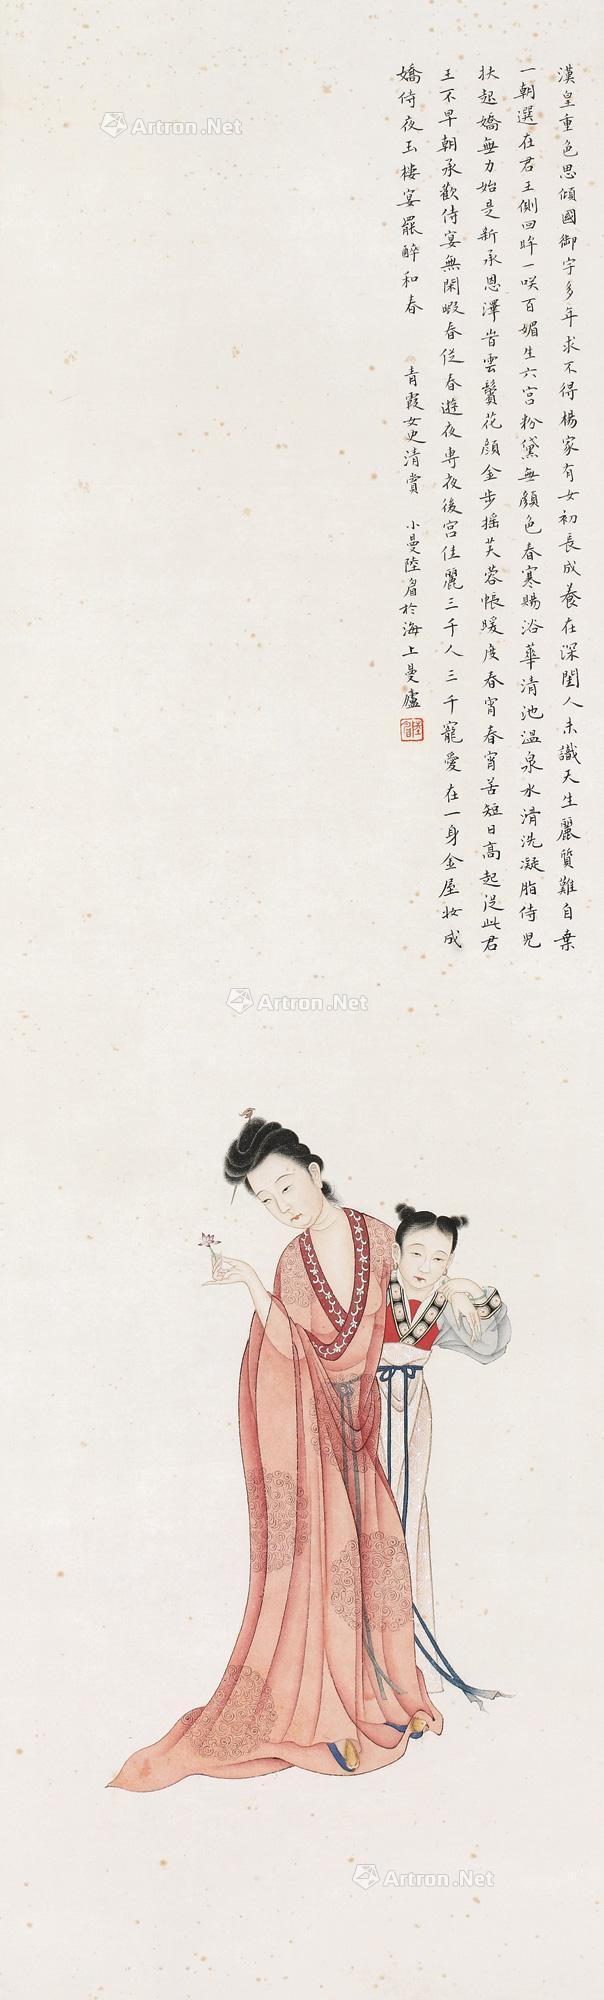 漢皇重色思傾國御宇多年求不得楊家有女初長成養在深閨人未識天生麗質難自棄
一朝選在君王側回眸一咲百媚生六宮粉黛無顏色春寒賜浴華清池溫泉水清洗凝脂侍兒
扶起嬌無力始是新承恩澤峕雲鬢花顏金步摇芙蓉帳暖度春宵春宵苦短日高起従此君
王不早朝承歡侍宴無閑暇春従春遊夜専夜後宮佳麗三千人三千寵愛在一身金屋妝成
嬌侍夜玉樓宴罷醉和春 青霞女史清賞 小曼陸眉於海上曼廬
Artron.Net
Artron.Net
Artron.Net
Artron.Net